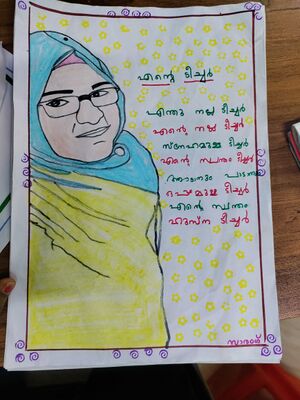 എന്റെ ടീച്ചർ
എന്തു നല്ല ടീച്ചർ
എന്റെ നല്ല ടീച്ചർ
സ്നേഹമുള്ള ടീച്ചർ
എന്റെ സ്വന്തം ടീച്ചർ
പാടാനും
ടീച്ചർ
എന്റെ സ്വന്തം
ഹുസ്ന ടീച്ചർ